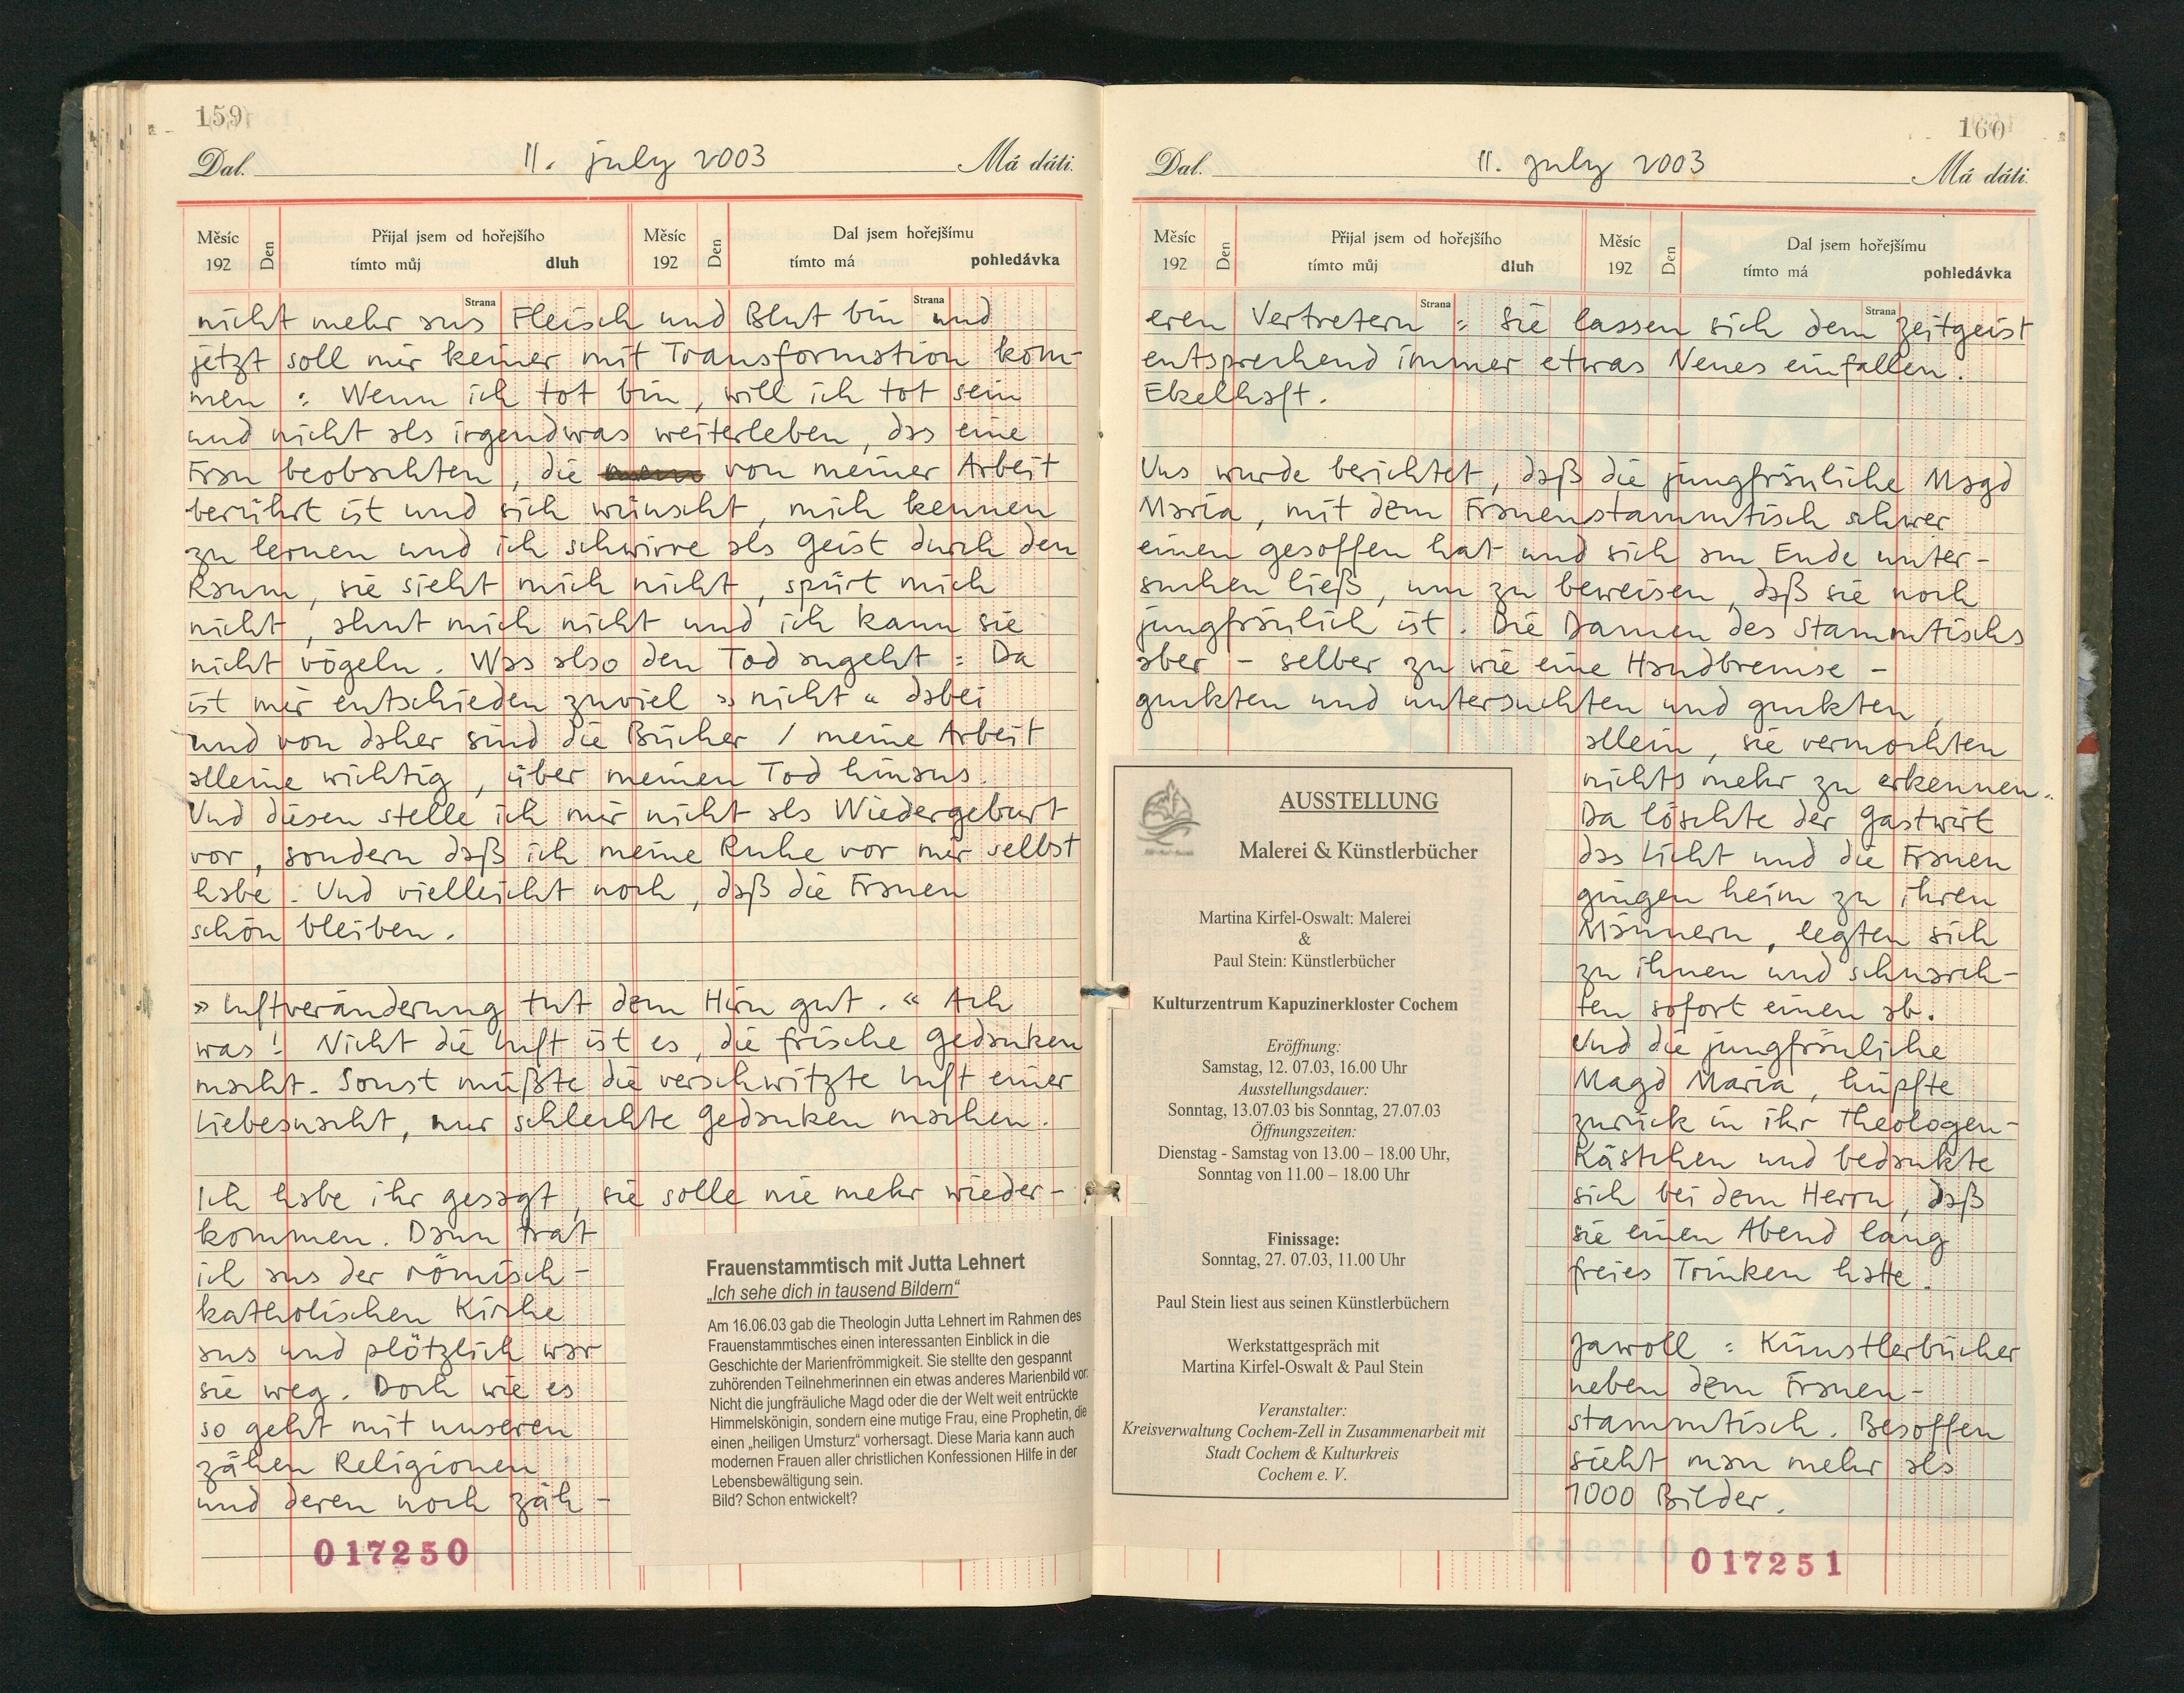 159
Dal. 11. july 2003 Má dáti.
Měsíc Den Přijal jsem od hořejšího Měsíc Den Dal jsem hořejšímu
192 tímto můj dluh 192 tímto má pohledávka
Strana Strana
nicht mehr aus Fleisch und Blut bin und
jetzt soll mir keiner mit Transformation kom-
men : Wenn ich tot bin, will ich tot sein
und nicht als irgendwas weiterleben, das eine
Frau beobachten, die von meiner Arbeit
berührt ist und sich wünscht, mich kennen
zu lernen und ich schwirre als Geist durch den
Raum, sie sieht mich nicht, spürt mich
nicht, ahnt mich nicht und ich kann sie
nicht vögeln. Was also den Tod angeht : Da
ist mir entschieden zuviel »nicht« dabei
und von daher sind die Bücher / meine Arbeit
alleine wichtig, über meinen Tod hinaus.
Und diesen stelle ich mir nicht als Wiedergeburt
vor, sondern daß ich meine Ruhe vor mir selbst
habe. Und vielleicht noch, daß die Frauen
schön bleiben.
»Luftveränderung tut dem Hirn gut.« Ach
was! Nicht die Luft ist es, die frische Gedanken
macht. Sonst müßte die verschwitzte Luft einer
Liebesnacht, nur schlechte Gedanken machen.
Ich habe ihr gesagt, sie solle nie mehr wieder-
kommen. Dann trat
ich aus der römisch-
katholischen Kirche
aus und plötzlich war
sie weg. Doch wie es
so geht mit unseren
zähen Religionen
und deren noch zäh-
Frauenstammtisch mit Jutta Lehnert
„Ich sehe dich in tausend Bildern“
Am 16.06.03 gab die Theologin Jutta Lehnert im Rahmen des
Frauenstammtisches einen interessanten Einblick in die
Geschichte der Marienfrömmigkeit. Sie stellte den gespannt
zuhörenden Teilnehmerinnen ein etwas anderes Marienbild vor:
Nicht die jungfräuliche Magd oder die der Welt weit entrückte
Himmelskönigin, sondern eine mutige Frau, eine Prophetin, die
einen „heiligen Umsturz“ vorhersagt. Diese Maria kann auch
modernen Frauen aller christlichen Konfessionen Hilfe in der
Lebensbewältigung sein.
Bild? Schon entwickelt?
017250
160
Dal. 11. july 2003 Má dáti.
Měsíc Den Přijal jsem od hořejšího Měsíc Den Dal jsem hořejšímu
192 tímto můj dluh 192 tímto má pohledávka
Strana Strana
eren Vertretern : sie lassen sich dem Zeitgeist
entsprechend immer etwas Neues einfallen.
Ekelhaft.
Uns wurde berichtet, daß die jungfräuliche Magd
Maria, mit dem Frauenstammtisch schwer
einen gesoffen hat und sich am Ende unter-
suchen ließ, um zu beweisen, daß sie noch
jungfräulich ist. Die Damen des Stammtischs
aber – selber zu wie eine Handbremse –
guckten und untersuchten und guckten,
allein, sie vermochten
nichts mehr zu erkennen.
Da löschte der Gastwirt
das Licht und die Frauen
gingen heim zu ihren
Männern, legten sich
zu ihnen und schnarch-
ten sofort einen ab.
Und die jungfräuliche
Magd Maria, hüpfte
zurück in ihr Theologen-
Kästchen und bedankte
sich bei dem Herrn, daß
sie einen Abend lang
freies Trinken hatte.
Jawoll : Künstlerbücher
neben dem Frauen-
stammtisch. Besoffen
sieht man mehr als
1000 Bilder.
AUSSTELLUNG
Malerei & Künstlerbücher
Martina Kirfel-Oswalt: Malerei
&
Paul Stein: Künstlerbücher
Kulturzentrum Kapuzinerkloster Cochem
Eröffnung:
Samstag, 12. 07.03, 16.00 Uhr
Ausstellungsdauer:
Sonntag, 13.07.03 bis Sonntag, 27.07.03
Öffnungszeiten:
Dienstag - Samstag von 13.00 – 18.00 Uhr,
Sonntag von 11.00 – 18.00 Uhr
Finissage:
Sonntag, 27. 07.03, 11.00 Uhr
Paul Stein liest aus seinen Künstlerbüchern
Werkstattgespräch mit
Martina Kirfel-Oswalt & Paul Stein
Veranstalter:
Kreisverwaltung Cochem-Zell in Zusammenarbeit mit
Stadt Cochem & Kulturkreis
Cochem e. V.
017251